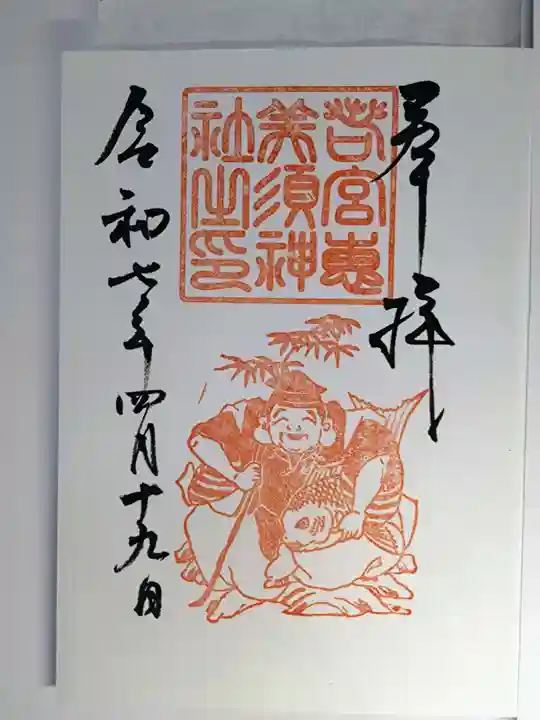 奉拝
若宮恵
美須神
社之印
令和七年四月十九日